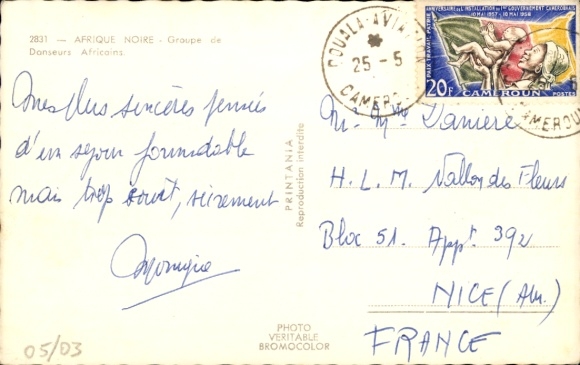 2831 - AFRIQUE NOIRE - Groupe de
Danseurs Africains.
Mes plus sincères pensées
d'un séjour formidable
mais trop court, sûrement
PRINTANIA
Reproduction interdite
PHOTO
VERITABLE
BROMOCOLOR
05/03
DOUALA-AVIATION
25-5
CAMEROUN
ANNIVERSAIRE DE L'INSTALLATION DU 1er GOUVERNEMENT CAMEROUNAIS
10 MAI 1957 - 10 MAI 1958
PAIX TRAVAIL PATRIE
20F CAMEROUN POSTES
CAMEROUN
M. Mme
H. L. M. Vallon des Fleurs
Bloc 51. Appt 392
NICE (Am.)
FRANCE